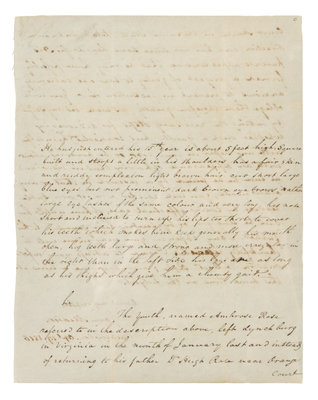 He has just entered his 15th year is about 5 feet high Square
built and stoops a little in his shoulders has a fair skin
and ruddy complexion light brown hair and short large
blue eyes but not prominent dark brown eye brows rather
large eye lashes of the same colour and very long, his nose
short and instead to his lips too short to cover
his teeth which makes him keep generally his mouth
open his teeth large and strong and more in
the right than in the left side his legs are as long
as his thighs which give him a gait.
The youth, named Ambrose Rose
referred to in the description above, left Lynchburg
in Virginia in the month of January last and instead
of returning to his father Dr Hugh Rose near Orange
Court